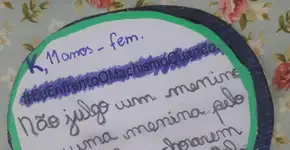 K, 11 anos - fem.
#EuEnfrentoOMachismoQuando
Não julgo um menino
uma menina pelo